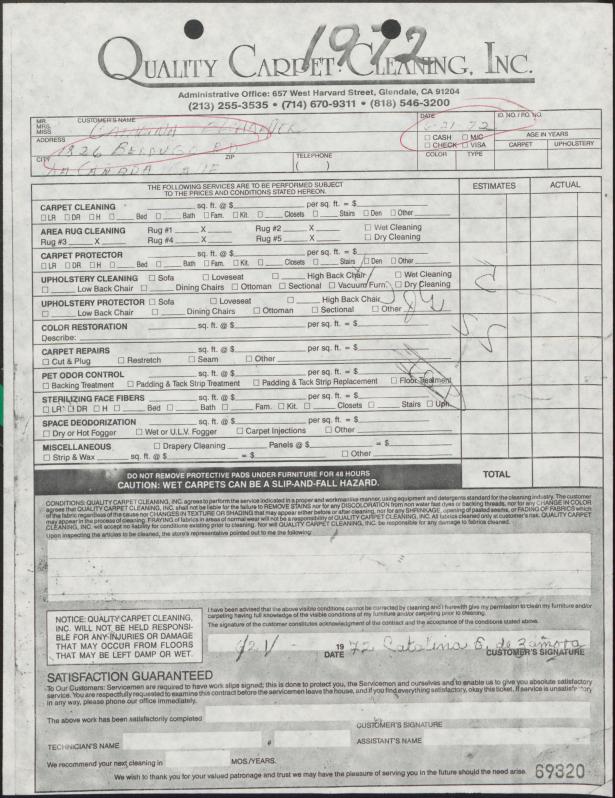 1972
QUALITY CARPET CLEANING, INC.
Administrative Office: 657 West Harvard Street, Glendale, CA 91204
(213) 255-3535 • (714) 670-9311 • (818) 546-3200
MR. MRS. MISS CUSTOMER'S NAME DATE ID. NO. / P.O. NO.
CATALINA
ADDRESS ☐ CASH ☐ M/C AGE IN YEARS
1826 ☐ CHECK ☐ VISA CARPET UPHOLSTERY
CITY ZIP TELEPHONE ( ) COLOR TYPE
LA CANADA
THE FOLLOWING SERVICES ARE TO BE PERFORMED SUBJECT TO THE PRICES AND CONDITIONS STATED HEREON. ESTIMATES ACTUAL
CARPET CLEANING sq. ft. @ $ per sq. ft. = $
☐ LR ☐ DR ☐ H ☐ Bed ☐ Bath ☐ Fam. ☐ Kit. ☐ Closets ☐ Stairs ☐ Den ☐ Other
AREA RUG CLEANING Rug #1 X Rug #2 X ☐ Wet Cleaning
Rug #3 X Rug #4 X Rug #5 X ☐ Dry Cleaning
CARPET PROTECTOR sq. ft. @ $ per sq. ft. = $
☐ LR ☐ DR ☐ H ☐ Bed ☐ Bath ☐ Fam. ☐ Kit. ☐ Closets ☐ Stairs ☐ Den ☐ Other
UPHOLSTERY CLEANING ☐ Sofa ☐ Loveseat ☐ High Back Chair ☐ Wet Cleaning
☐ Low Back Chair ☐ Dining Chairs ☐ Ottoman ☐ Sectional ☐ Vacuum Furn. ☐ Dry Cleaning
UPHOLSTERY PROTECTOR ☐ Sofa ☐ Loveseat ☐ High Back Chair
☐ Low Back Chair ☐ Dining Chairs ☐ Ottoman ☐ Sectional ☐ Other
COLOR RESTORATION sq. ft. @ $ per sq. ft. = $
Describe:
CARPET REPAIRS sq. ft. @ $ per sq. ft. = $
☐ Cut & Plug ☐ Restretch ☐ Seam ☐ Other
PET ODOR CONTROL sq. ft. @ $ per sq. ft. = $
☐ Backing Treatment ☐ Padding & Tack Strip Treatment ☐ Padding & Tack Strip Replacement ☐ Floor Treatment
STERILIZING FACE FIBERS sq. ft. @ $ per sq. ft. = $
☐ LR ☐ DR ☐ H ☐ Bed ☐ Bath ☐ Fam. ☐ Kit. ☐ Closets ☐ Stairs ☐ Uph.
SPACE DEODORIZATION sq. ft. @ $ per sq. ft. = $
☐ Dry or Hot Fogger ☐ Wet or U.L.V. Fogger ☐ Carpet Injections ☐ Other
MISCELLANEOUS ☐ Drapery Cleaning Panels @ $ = $
☐ Strip & Wax sq. ft. @ $ = $ ☐ Other
DO NOT REMOVE PROTECTIVE PADS UNDER FURNITURE FOR 48 HOURS
CAUTION: WET CARPETS CAN BE A SLIP-AND-FALL HAZARD. TOTAL
CONDITIONS: QUALITY CARPET CLEANING, INC. agrees to perform the service indicated in a proper and workmanlike manner, using equipment and detergents standard for the cleaning industry. The customer
agrees that QUALITY CARPET CLEANING, INC. shall not be liable for the failure to REMOVE STAINS nor for any DISCOLORATION from non water fast dyes or backing threads, nor for any CHANGE IN COLOR
of the fabric regardless of the cause nor CHANGES IN TEXTURE OR SHADING that may appear either before or after cleaning, nor for any SHRINKAGE, opening of pasted seams, or FADING OF FABRICS which
may appear in the process of cleaning. FRAYING of fabrics in areas of normal wear will not be a responsibility of QUALITY CARPET CLEANING, INC. All fabrics cleaned only at customer's risk. QUALITY CARPET
CLEANING, INC. will accept no liability for conditions existing prior to cleaning. Nor will QUALITY CARPET CLEANING, INC. be responsible for any damage to fabrics cleaned.
Upon inspecting the articles to be cleaned, the store's representative pointed out to me the following:
I have been advised that the above visible conditions cannot be corrected by cleaning and I herewith give my permission to clean my furniture and/or
carpeting having full knowledge of the visible conditions of my furniture and/or carpeting prior to cleaning.
The signature of the customer constitutes acknowledgment of the contract and the acceptance of the conditions stated above.
NOTICE: QUALITY CARPET CLEANING,
INC. WILL NOT BE HELD RESPONSI-
BLE FOR ANY INJURIES OR DAMAGE
THAT MAY OCCUR FROM FLOORS
THAT MAY BE LEFT DAMP OR WET.
19 72 Catalina E. de Zamora
DATE CUSTOMER'S SIGNATURE
SATISFACTION GUARANTEED
To Our Customers: Servicemen are required to have work slips signed; this is done to protect you, the Servicemen and ourselves and to enable us to give you absolute satisfactory
service. You are respectfully requested to examine this contract before the servicemen leave the house, and if you find everything satisfactory, okay this ticket. If service is unsatisfactory
in any way, please phone our office immediately.
The above work has been satisfactorily completed
CUSTOMER'S SIGNATURE
TECHNICIAN'S NAME # ASSISTANT'S NAME
We recommend your next cleaning in MOS./YEARS.
We wish to thank you for your valued patronage and trust we may have the pleasure of serving you in the future should the need arise. 69320